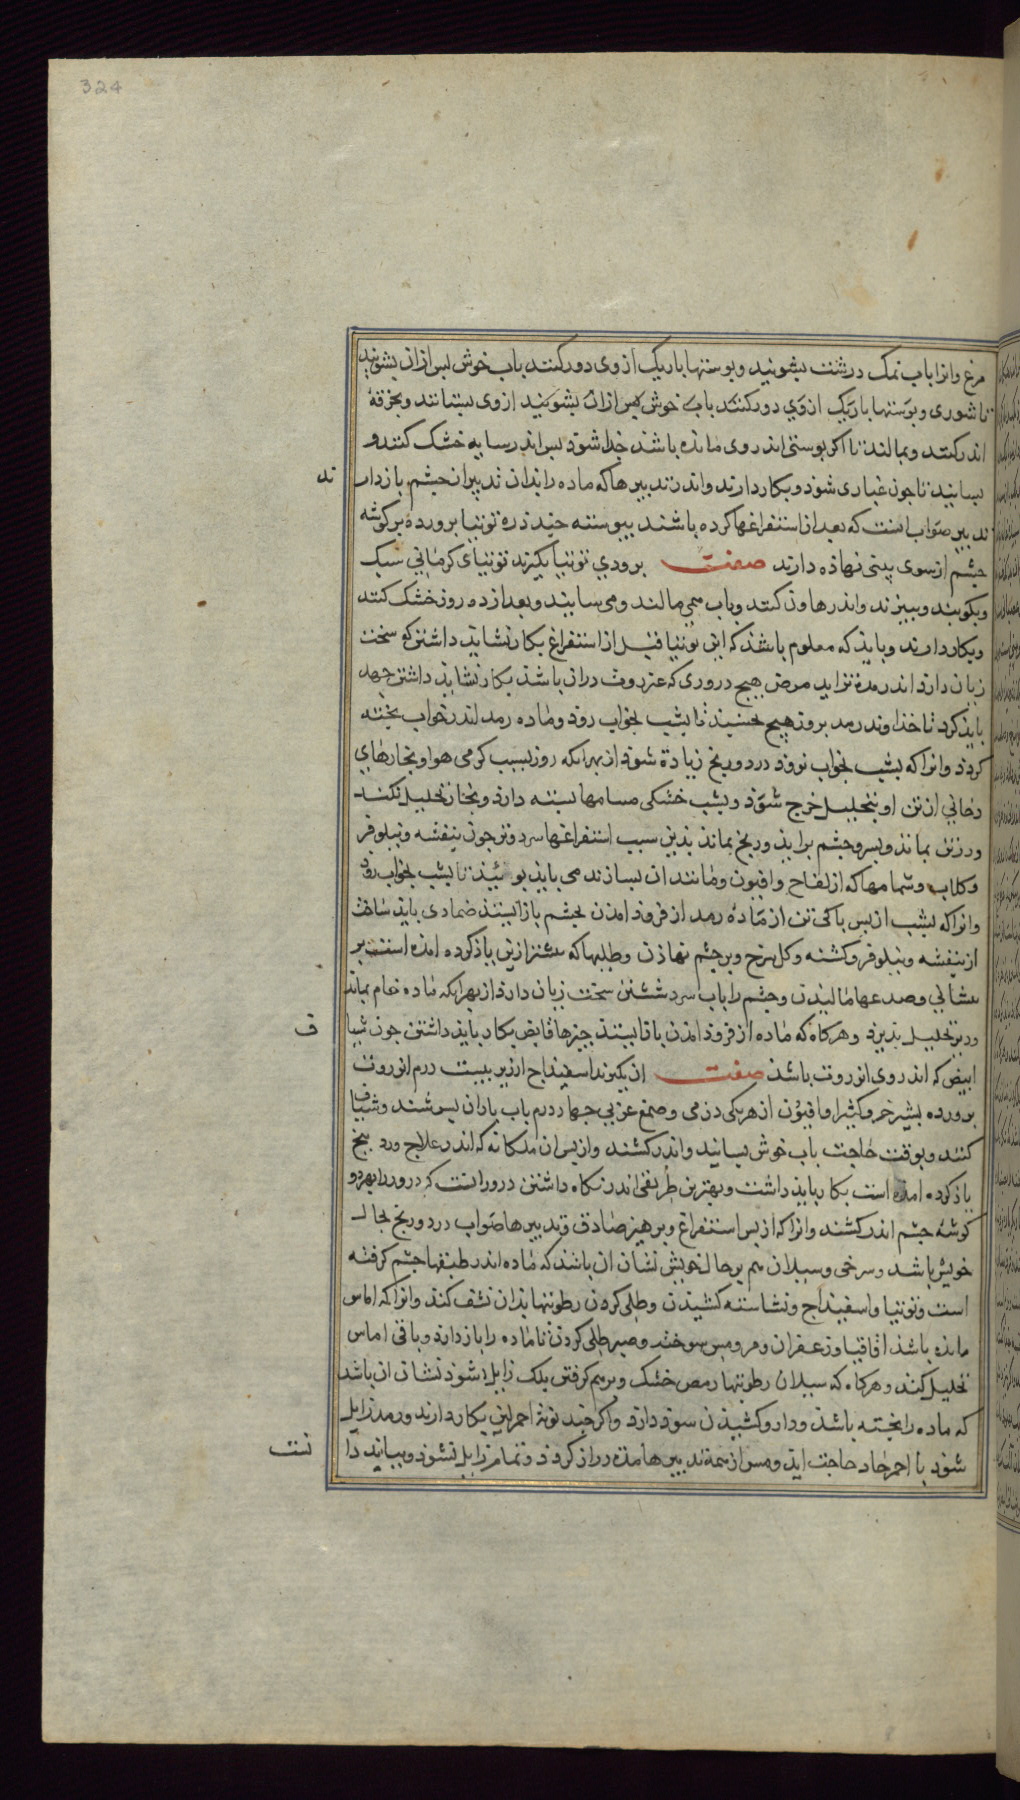 324
مرغ و انرا باب نمک درشت بشویند و پوستها باریک از وی دور کنند باب خوش پس از ان بشویند
تا شوری و پوستها باریک از وی دور کنند باب خوش پس از ان بشویند از وی بستانند و بخرقهٔ
اندر کنند و بمالند تا اگر پوستی اندر وی مانده باشذ جذا شوذ پس اندر سایه خشک کنند و
بسایند تا جون غباری شوذ و بکار دارند و اندر تدبیرها که ماده را بذان تدبیر از جشم بازدارند
تدبیر صواب انست که بعد از استفراغها کرده باشند پیوسته جند ذره توتیا پرورده بر گوشه
جشم از سوی بینی نهاذه دارند صفت پروردن توتیا بگیرند توتیای کرمانی سبک
و بکوبند و ببیزند و اندر هاون کنند و باب می مالند و می سایند و بعد از ده روز خشک کنند
و بکار دارند و بایذ که معلوم باشذ که این توتیا قبل از استفراغ بکار نشایذ داشتن که سخت
زیان دارذ اندر رمد تزاید مرض هیج دروری که عنزروت در ان باشذ بکار نشایذ داشتن جهد
بایذ کرد تا خذاوند رمد بروز هیج نخسبذ تا بشب بخواب روذ و ماده رمد اندر خواب پخته
گردذ و انرا که بشب بخواب نروذ درد و رنج زیادة شوذ از بهر انکه روز بسبب گرمی هوا و بخارهای
دخانی از تن او بتحلیل خرج شوذ و بشب خشکی مسامها بسته دارذ و بخار تحلیل نکند
و در تن بماند و بسر و جشم برایذ و رنج بماند بذین سبب استفراغها سرد و تر جون بنفشه و نیلوفر
و گلاب و شمامها که از لفاح و افیون و مانند ان بسازند می بایذ بوئیذ تا بشب بخواب روذ
و انرا که بشب از پس باکی تن از مادهٔ رمد از فروذ امدن بجشم باز ایستذ ضمادی بایذ ساخت
از بنفشه و نیلوفر و کشنه و گل سرخ و بر جشم نهاذن و طلیها که بیشتر ازین یاذ کرده امذه است بر
بیشانی و صدعها مالیذن و جشم را باب سرد شستن سخت زیان دارذ از بهر انکه ماده خام بماند
و دیر تحلیل پذیرد و هرگاه که ماده از فروذ امدن باز ایستذ جیزها قابض بکار بایذ داشتن جون شیا
ف
ابیض که اندر وی انزروت باشذ صفت ان بگیرند اسفیذاج ارزیز بیست درم انزروت
پرورده بشیر خر و کثیرا و افیون از هر یکی درمی و صمغ عربی جهار درم باب باران بسرشند و شیاف
کنند و بوقت حاجت باب خوش بسایند و اندر کشند و از پس ان ملکانه که اندر علاج ورد ینج
یاذ کرده امذه است بکار بایذ داشت و بهترین طریقی اندر نگاه داشتن درور انست که درور را بهر دو
گوشهٔ جشم اندر کشند و انرا که از پس استفراغ و پرهیز صادق و تدبیرها صواب درد و رنج بحال
خویش باشد و سرخی و سیلان هم بر حال خویش نشان ان باشذ که ماده اندر طبقها جشم گرفته
است و توتیا و اسفیذاج و نشاسته کشیذن و طلی کردن رطوبتها بذان نشف کنذ و انرا که اماس
مانده باشذ اقاقیا و زعفران و مر و مس سوخته و صبر طلی کردن تا ماده را باز دارد و باقی اماس
تحلیل کند و هرگاه که سیلان رطوبتها رمص خشک و برهم گرفتن پلک زایل شوذ نشان ان باشد
که ماده را پخته باشذ و دارو کشیذن سوذ دارد و اگر جند نوبة احمر لین بکار دارند و رمد زایل
شوذ با احمر حاد حاجت ایذ و پس از همه تدبیرها مدة دراز گردذ و تمام زایل نشوذ و بیایذ دا
نست